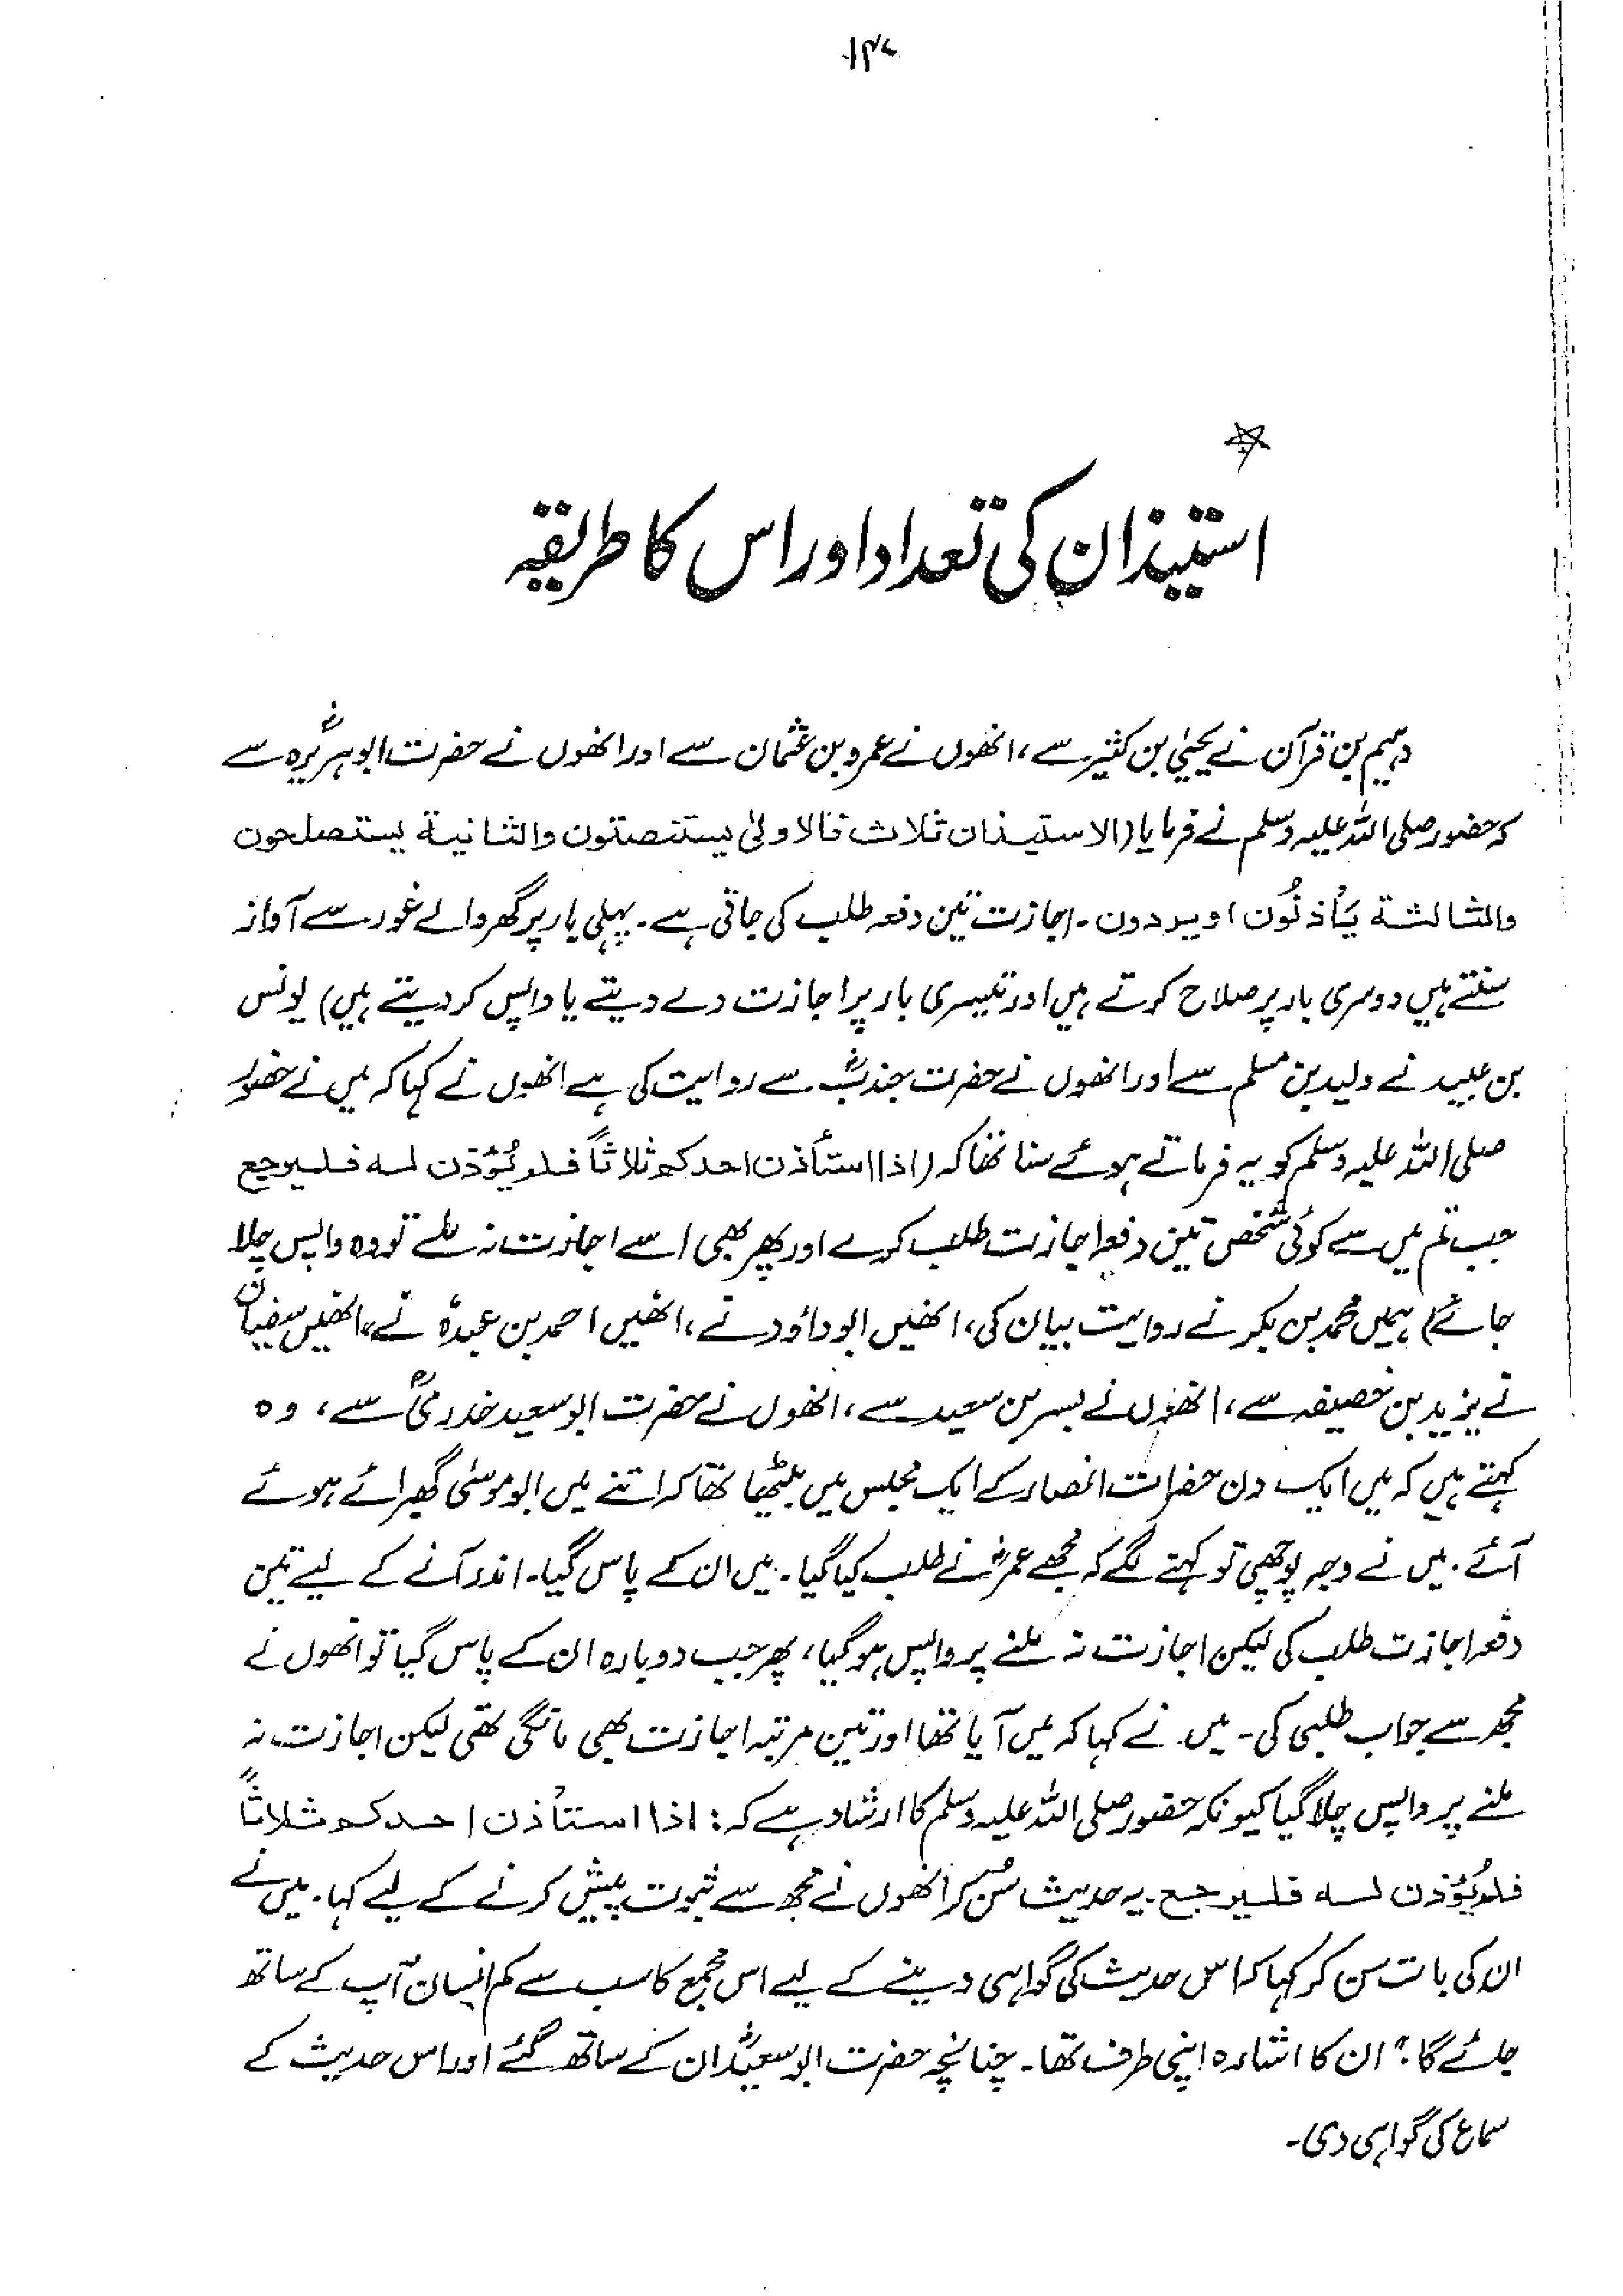 ۱۴۰
استیذان کی تعداد اور اس کا طریقہ
دہیم بن قرآن نے یحییٰ بن کثیر سے، انھوں نے عمرو بن عثمان سے اور انھوں نے حضرت ابوہریرہؓ سے
کہ حضور صلی اللہ علیہ وسلم نے فرمایا (الاستیذان ثلاث فالاولیٰ یستنصتون والثانیة یستصلحون
والثالثة یأذنُون اویردون۔ اجازت تین دفعہ طلب کی جاتی ہے۔ پہلی بار پر گھر والے غور سے آواز
سنتے ہیں دوسری بار پر صلاح کرتے ہیں اور تیسری بار پر اجازت دے دیتے یا واپس کر دیتے ہیں) یونس
بن عبید نے ولید بن مسلم سے اور انھوں نے حضرت جندبؓ سے روایت کی ہے انھوں نے کہا کہ میں نے حضور
صلی اللہ علیہ وسلم کو یہ فرماتے ہوئے سنا تھا کہ (اذا استأذن احدکم ثلاثاً فلم یُؤذن لہ فلیرجع
جب تم میں سے کوئی شخص تین دفعہ اجازت طلب کرے اور پھر بھی اسے اجازت نہ ملے تو وہ واپس چلا
جائے) ہمیں محمد بن بکر نے روایت بیان کی، انھیں ابوداؤد نے، انھیں احمد بن عبدہ نے، انھیں سفیان
نے یزید بن خصیفہ سے، انھوں نے بسر بن سعید سے، انھوں نے حضرت ابو سعید خدریؓ سے، وہ
کہتے ہیں کہ میں ایک دن حضرات انصار کے ایک مجلس میں بیٹھا تھا کہ اتنے میں ابو موسیٰ گھبرائے ہوئے
آئے۔ میں نے وجہ پوچھی تو کہنے لگے کہ مجھے عمرؓ نے طلب کیا گیا۔ میں ان کے پاس گیا۔ اندر آنے کے لیے تین
دفعہ اجازت طلب کی لیکن اجازت نہ ملنے پر واپس ہو گیا، پھر جب دوبارہ ان کے پاس گیا تو انھوں نے
مجھ سے جواب طلبی کی۔ میں نے کہا کہ میں آیا تھا اور تین مرتبہ اجازت بھی مانگی تھی لیکن اجازت نہ
ملنے پر واپس چلا گیا کیونکہ حضور صلی اللہ علیہ وسلم کا ارشاد ہے کہ: اذا استأذن احدکم ثلاثاً
فلم یُؤذن لہ فلیرجع۔ یہ حدیث سُن کر انھوں نے مجھ سے ثبوت پیش کرنے کے لیے کہا۔ میں نے
ان کی بات سن کر کہا کہ اس حدیث کی گواہی دینے کے لیے اس مجمع کا سب سے کم انسان آپ کے ساتھ
جائے گا؟ ان کا اشارہ اپنی طرف تھا۔ چنانچہ حضرت ابو سعیدؓ ان کے ساتھ گئے اور اس حدیث کے
سماع کی گواہی دی۔